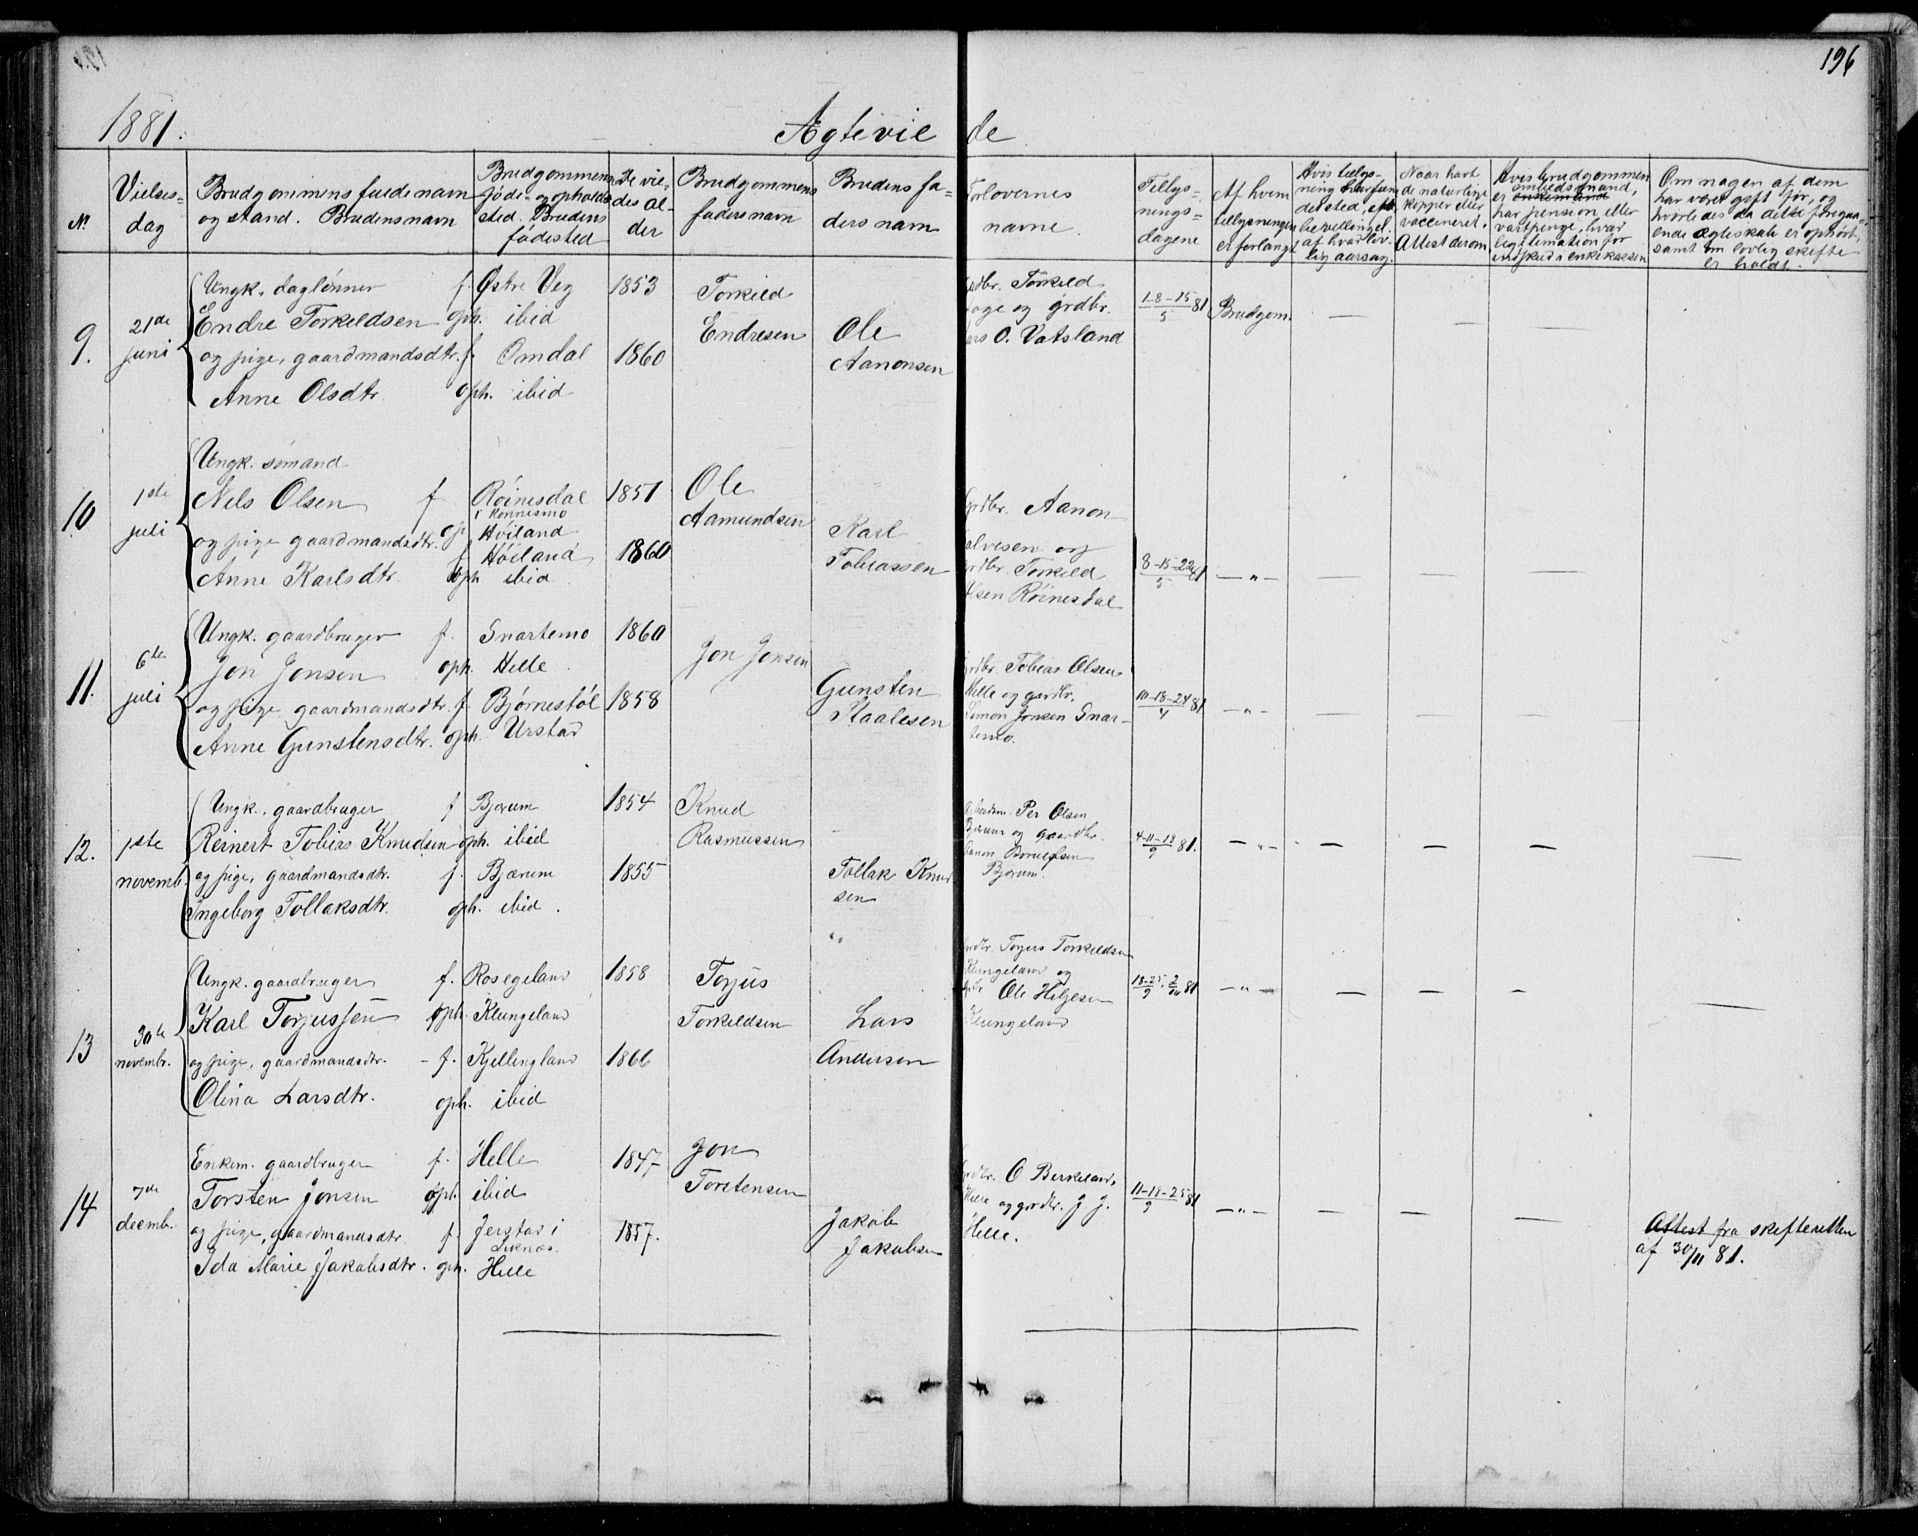 196
1881.
Ægtevie de
N.
Vielses-
dag
Brudgommens fulde navn
og stand. Brudens navn
Brudgommens
føde- og opholds-
sted. Brudens
fødested
De vie-
des al-
der
Brudgommens
faders navn
Brudens fa-
ders navn
Forlovernes
navne.
Tillys-
nings-
dagene
Af hvem
tillysningen
er forlangt
Hvis tillys-
ning har fun-
det sted, eft.
bevillinge,
af hvad lov-
lig aarsag.
Naar havt
de naturlige
kopper eller
vaccineret.
Attest derom
Hvis brudgommen
er embedsmand,
enkemand
har pension eller
vartpenge, hvar
legitimation for
indskud i enkekassen
Om nogen af dem
har været gift før, og
hvorledes da dette foregaa-
ende ægteskab er ophørt,
samt om lovlig skifte
er holdt.
9.
21de
juni
Ungk. daglønner f. Østre Veg 1853
Endre Torkildsen oph. ibid
og pige, gaardmandsdtr. f. Omdal 1860
Anne Olsdtr. oph. ibid
Torkild
Endresen
Ole
Aanonsen
grdbr. Torkild
og grdbr.
O. Vatsland
1-8-15/5 81
Brudgom.
— — — —
10
1ste
juli
Ungk. sømand
Nels Olsen f. Røinesdal 1851
i Konnesmo
op. Høiland
og pige gaardmandsdtr. f. Høiland 1860
Anne Karlsdtr. oph. ibid
Ole
Aamundsen
Karl
Tobiassen
Grdbr. Aanon
alvesen og
grdbr. Torkild
Olsen Røinesdal
8-15-22/5 81
— „ — — — — —
11.
6te
juli
Ungk. gaardbruger f. Snartemo 1860
Jon Jonsen oph. Helle.
og pige gaardmandsdtr. f. Bjørnestøl 1858
Anne Gunstensdtr. oph. Urstad
Jon Jonsen
Gunsten
Staalesen
Grdbr. Tobias Olsen
Helle og gardbr.
Simon Jonsen Snar-
temo.
10-18-24/4 81
— „ — — — — —
12.
1ste
novemb.
Ungk. gaardbruger f. Bjærum 1854
Reinert Tobias Knudsen oph. ibid
og pige, gaardmandsdtr. f. Bjærum 1855
Ingeborg Tollaksdtr. oph. ibid.
Knud
Rasmussen
Tollak Knud
sen
„
Per Olsen
Bjærum og gaardbr.
Aanon
Bjærum.
4-11-18/9 81.
— „ — — — — —
13
30te
novembr.
Ungk. gaardbruger f. Rosegeland 1858
Karl Torjussen oph. Klungeland
og pige, gaardmandsdtr. – f. Kjellingland 1866
Olina Larsdtr. oph. ibid
Torjus
Torkildsen
Lars
Andersen
Grdbr. Torjus Torkildsen
Klungeland og
grbr. Ole Helgesen
Klungeland
18-25/9 . 2/10 81
— „ — — — — —
14
7de
decemb.
Enkem. gaardbruger f. Helle 1847
Torsten Jonsen oph. ibid
og pige, gaardmandsdtr. f. Jerstad i 1857.
Liknæs.
Ida Marie Jakobsdtr. oph. Helle
Jon
Torstensen
Jakob
Jakobsen
Grdbr. O Berkeland,
Helle og grdbr. J. J.
Helle.
11-18-25/9 81
— „ — — — —
Attest fra skifteretten
af 30/11 81.